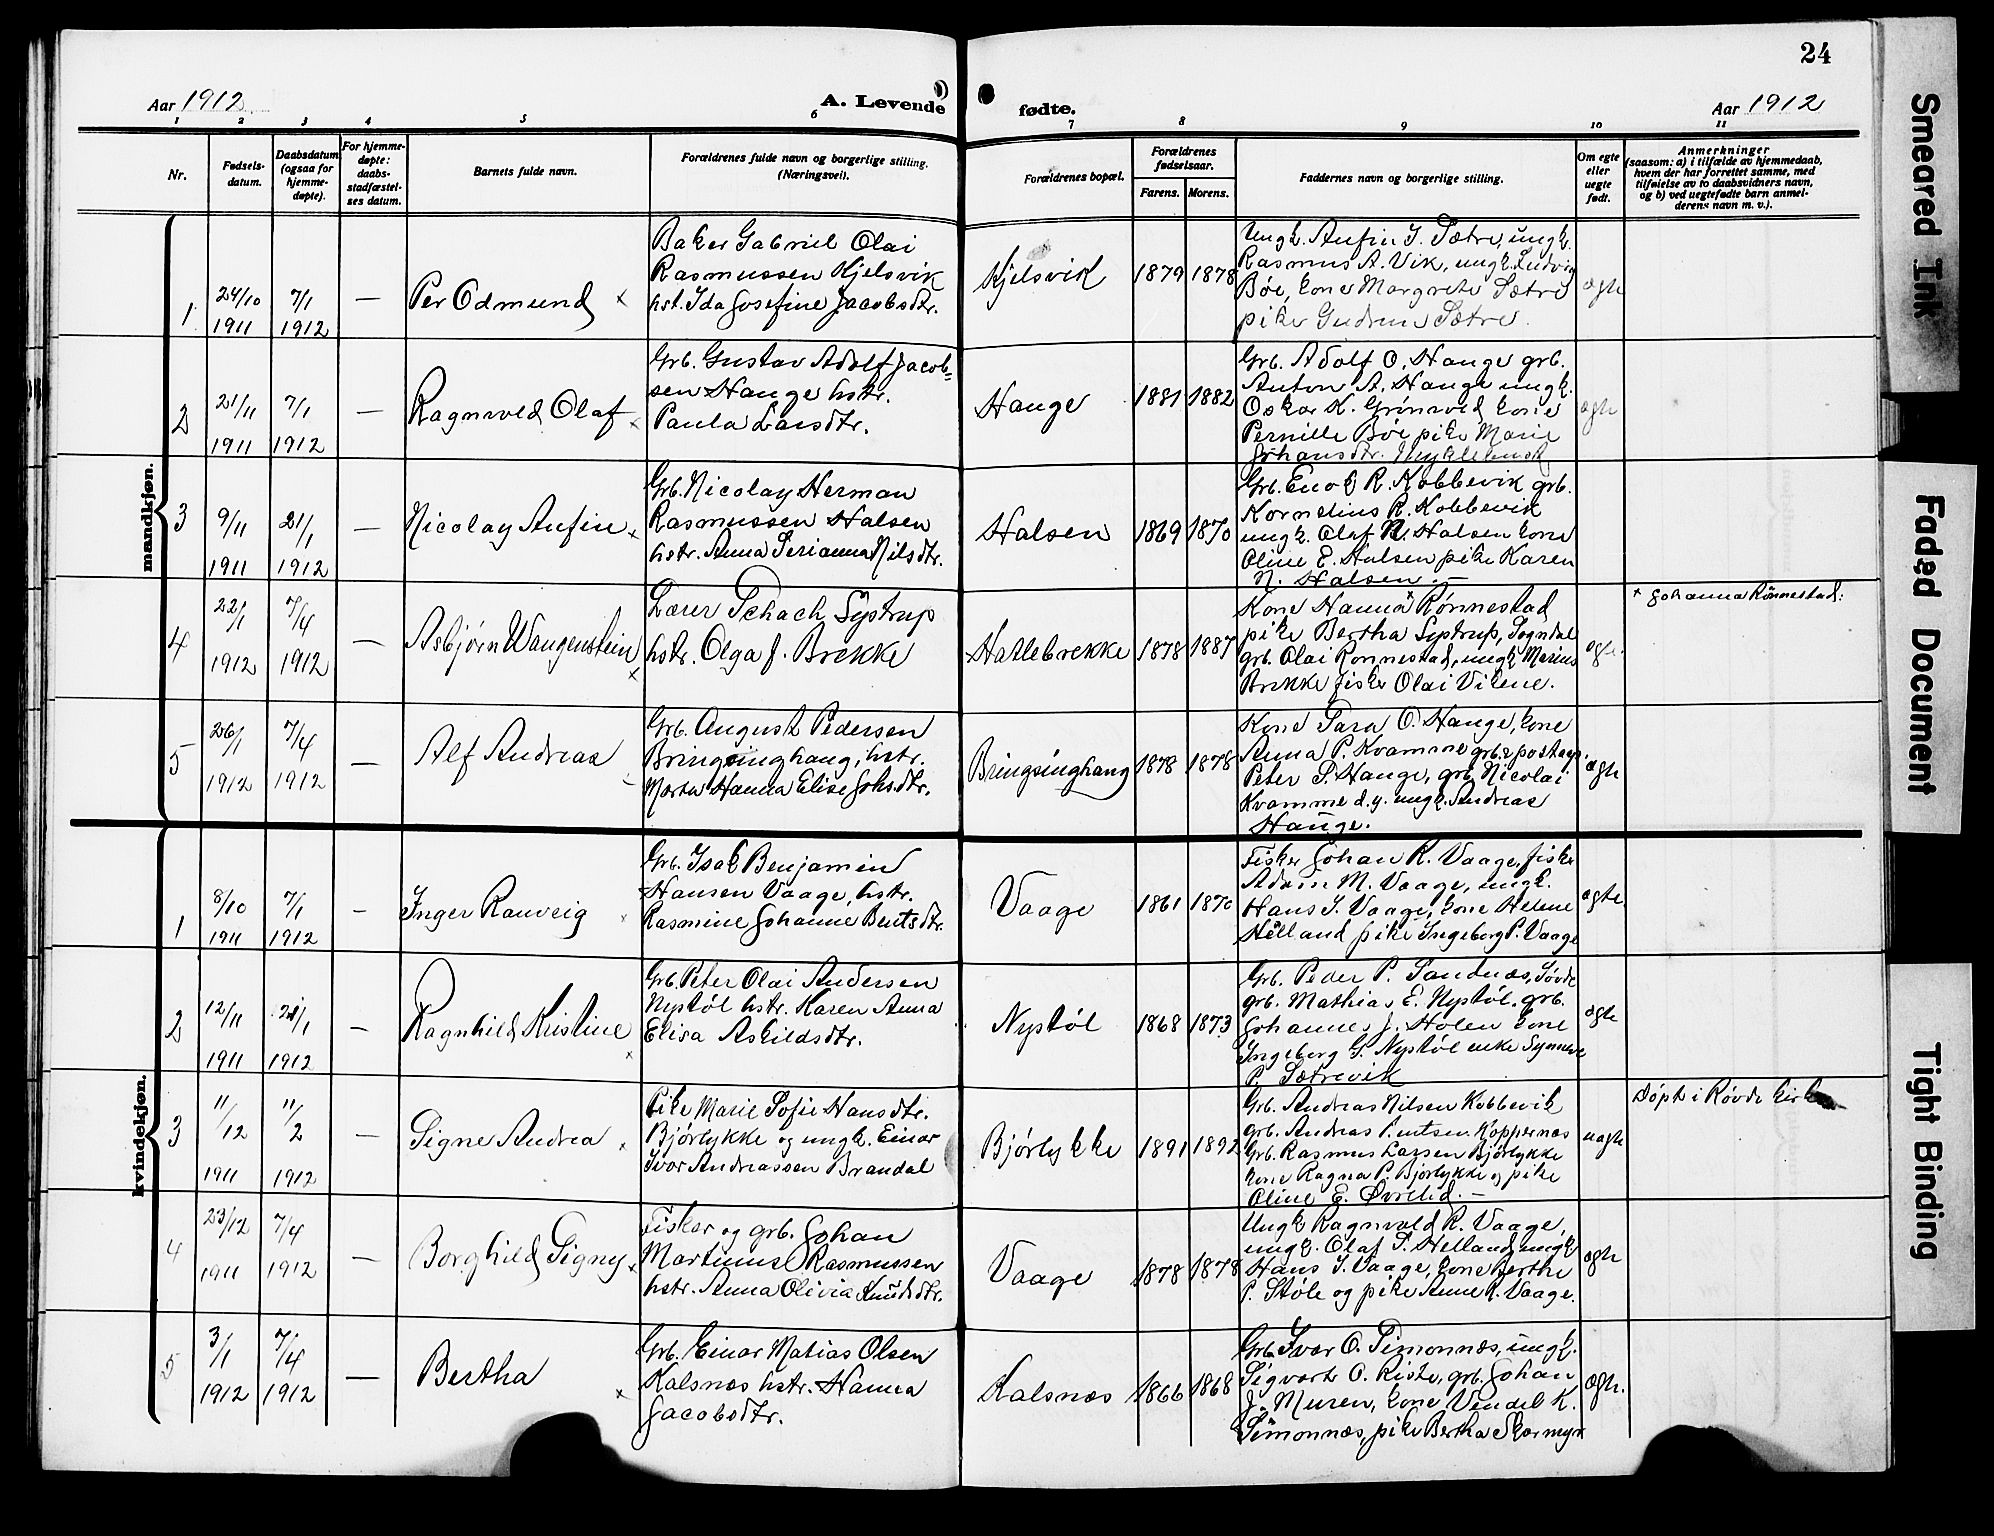 24
Aar 1912
A. Levende fødte.
Aar 1912
1 2 3 4 5 6 7 8 9 10 11
Nr.
Fødsels-
datum.
Daabsdatum
(ogsaa for
hjemme-
døpte).
For hjemme-
døpte:
daabs-
stadfæstel-
ses datum.
Barnets fulde navn.
Forældrenes fulde navn og borgerlige stilling.
(Næringsvei).
Forældrenes bopæl.
Forældrenes
fødselsaar.
Farens. Morens.
Faddernes navn og borgerlige stilling.
Om egte
eller
uegte
født.
Anmerkninger
(saasom: a) i tilfælde av hjemmedaab,
hvem der har forrettet samme, med
tilføielse av to daabsvidners navn,
og b) ved uegtefødte barn anmel-
derens navn m. v.).
mandkjøn.
1
24/10
1911
7/1
1912
—
Per Odmund ×
Baker Gabriel Olai
Rasmussen Kjelsvik
hst. Ida Josefine Jacobsdtr.
Kjelsvik
1879 1878
Ungk. Anfin J. Sætre, ungk.
Rasmus A. Vik, ungk. Ludvig
Bøe, kone Margrete Sætre
pike Gudrun Sætre.
ægte
2
21/11
1911
7/1
1912
—
Ragnvald Olaf ×
Grb. Gustav Adolf Jacob=
sen Hauge hstr.
Paula Larsdtr.
Hauge
1881 1882
Grb. Adolf O. Hauge grb.
Anton A. Hauge ungk.
Oskar K. Grönvold kone
Pernille Böe pike Marie
Johansdtr. Myklebust
ægte
3
9/11
1911
21/1
1912
—
Nicolay Anfin ×
Grb. Nicolay Herman
Rasmussen Halsen
hstr. Anna Serianna Nilsdtr.
Halsen
1869 1870
Grb. Enok R. Kobbevik grb.
Kornelius R. Kobbevik
ungk. Olaf N. Halsen kone
Oline E. Halsen pike Karen
N. Halsen. —
4
22/1
1912
7/4
1912
—
Asbjørn Wangenstein ×
Lærer Schach Systrup
hstr. Olga J. Brekke
Hatlebrekke
1878 1887
Kone Hanna × Rønnestad
pike Bertha Systrup, Sogndal
grb. Olai Rønnestad, ungk Marius
Brekke fisker Olai Vikene.
ægte.
× Johanna Rønnestad.
5
26/1
1912
7/4
1912
—
Alf Andreas
Grb. August Pedersen
Bringsinghaug, hstr.
Marta Hanna Elise Johsdtr.
Bringsinghaug
1878 1878
Kone Sara O. Hauge, kone
Anna P. Kvamme grb. & postaap.
Peter S. Hauge, grb. Nicolai
Kvamme d.y. ungk. Andreas
Hauge.
ægte
kvindekjøn.
1
8/10
1911
7/1
1912
—
Inger Ranveig ×
Grb. Isak Benjamin
Hansen Vaage, hstr.
Rasmine Johanne Bentsdtr.
Vaage
1861 1870
Fisker Johan R. Vaage, fisker
Adam M. Vaage, ungk.
Hans I. Vaage, kone Helene
Helland pike Ingeborg P. Vaage
ægte.
2
12/11
1911
21/1
1912
—
Ragnhild Kristine ×
Grb. Peter Olai Andersen
Nystøl hstr. Karen Anna
Elisa Askildsdtr.
Nystøl
1868 1873
Grb. Peder P. Sandnæs, Søvde
grb. Mathias E. Nystøl. grb.
Johannes J. Holen kone
Ingeborg G. Nystøl enke Synneve
P. Sætrevik
ægte
3
11/12
1911
11/2
1912
—
Signe Andrea ×
Pike Marie Sofie Hansdtr.
Bjørlykke og ungk. Einar
Ivar Andreassen Brandal
Bjørlykke
1891 1892
Grb. Andreas Nilsen Kobbevik
grb. Andreas Bentsen Koppernæs
Grb. Rasmus Larsen Bjørlykke
kone Ragna P. Bjørlykke og pike
Oline E. Øvrelid. —
uægte
Döpt i Røvde kirke
4
23/12
1911
7/4
1912
—
Borghild Signy ×
Fisker og grb. Johan
Martinus Rasmussen
hstr. Anna Olivia Knudsdtr.
Vaage
1878 1878
Ungk Ragnvald R. Vaage,
ungk. Olaf S. Helland, ungk
Hans I. Vaage, kone Berthe
P. Støle og pike Anne R. Vaage.
ægte
5
3/1
1912
7/4
1912
—
Bertha ×
Grb. Einar Matias Olsen
Kalsnæs hstr. Hanna
Jacobsdtr.
Kalsnæs
1866 1868
Grb. Ivar O. Simonnæs, ungk.
Sigvart O. Riste, grb. Johan
J. Muren, kone Vendel K.
Simonnæs, pike Bertha Skarmyr
ægte.
Smeared Ink
Faded Document
Tight Binding